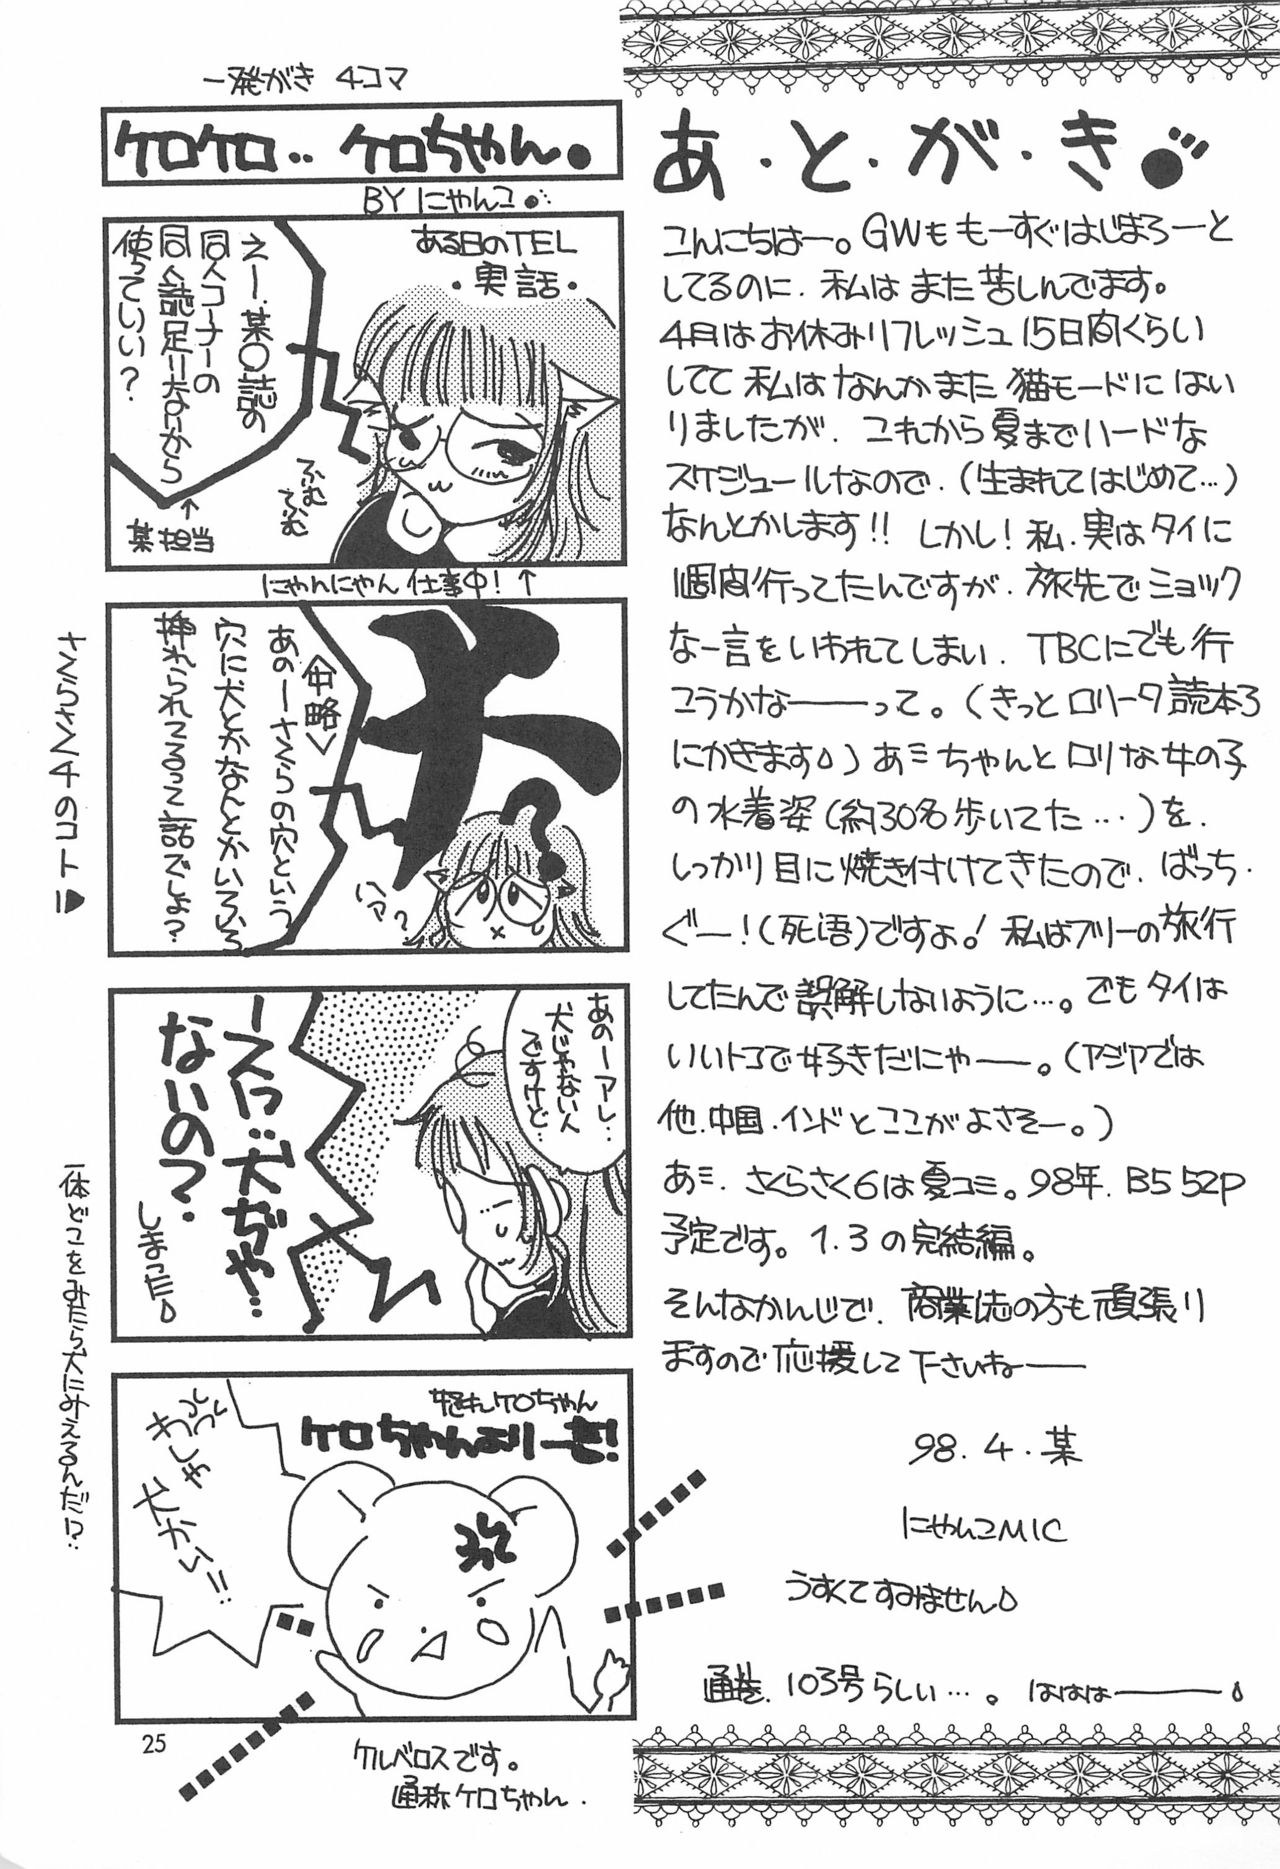 あ・と・が・き
こんにちはー。GWももーすぐはじまろーと
してるのに、私はまた苦しんでます。
4月はお休みリフレッシュ15日間くらい
してて私はなんかまた猫モードにはい
りましたが、これから夏までハードな
スケジュールなので、(生まれてはじめて…)
なんとかします!!しかし!私、実はタイに
1週間行ってたんですが、旅先でショック
な一言をいわれてしまい、TBCにでも行
こうかな───って。(きっとロリータ読本3
にかきます)あミちゃんとロリな女の子
の水着姿(約30名歩いてた…)を、
しっかり目に焼き付けてきたので、ばっち・
ぐー!(死语)ですよ!私はフリーの旅行
してたんで誤解しないように…。でもタイは
いいトコで好きだにゃ──。(アジアでは
他、中国、インドとここがよさそー。)
あミ、さくらさく6は夏コミ。98年、B5 52P
予定です。1.3の完結編。
そんなかんじで、商業誌の方も頑張り
ますので応援して下さいねー──
98.4.某
にゃんこMIC
うすくてすみません
通巻、103号らしい…。ははは────
一発がき 4コマ
ケロケロ・・ケロちゃん
BY にゃんコ
ある日のTEL
・実話・
えー、某〇誌の
同人コーナーの
同人誌足りないから
使っていい?
某担当
ふむふむ
にゃんにゃん仕事中!
(中略)
あのーさくらの穴という
穴に犬とかなんとかいろいろ
挿れられてるって話ズしょ?
ハァ?
犬?
さくらさく4のコト
あのーアレ…
犬じゃない人
ですけど…
ースっ…犬ぢゃ…
ないの?
しまった
一体どこをみたら犬にみえるんだ!?…
怒れケロちゃん
ケロちゃんよりー也!
わっしゃ
犬かい!!
ケルベロスです。
通称ケロちゃん.
25